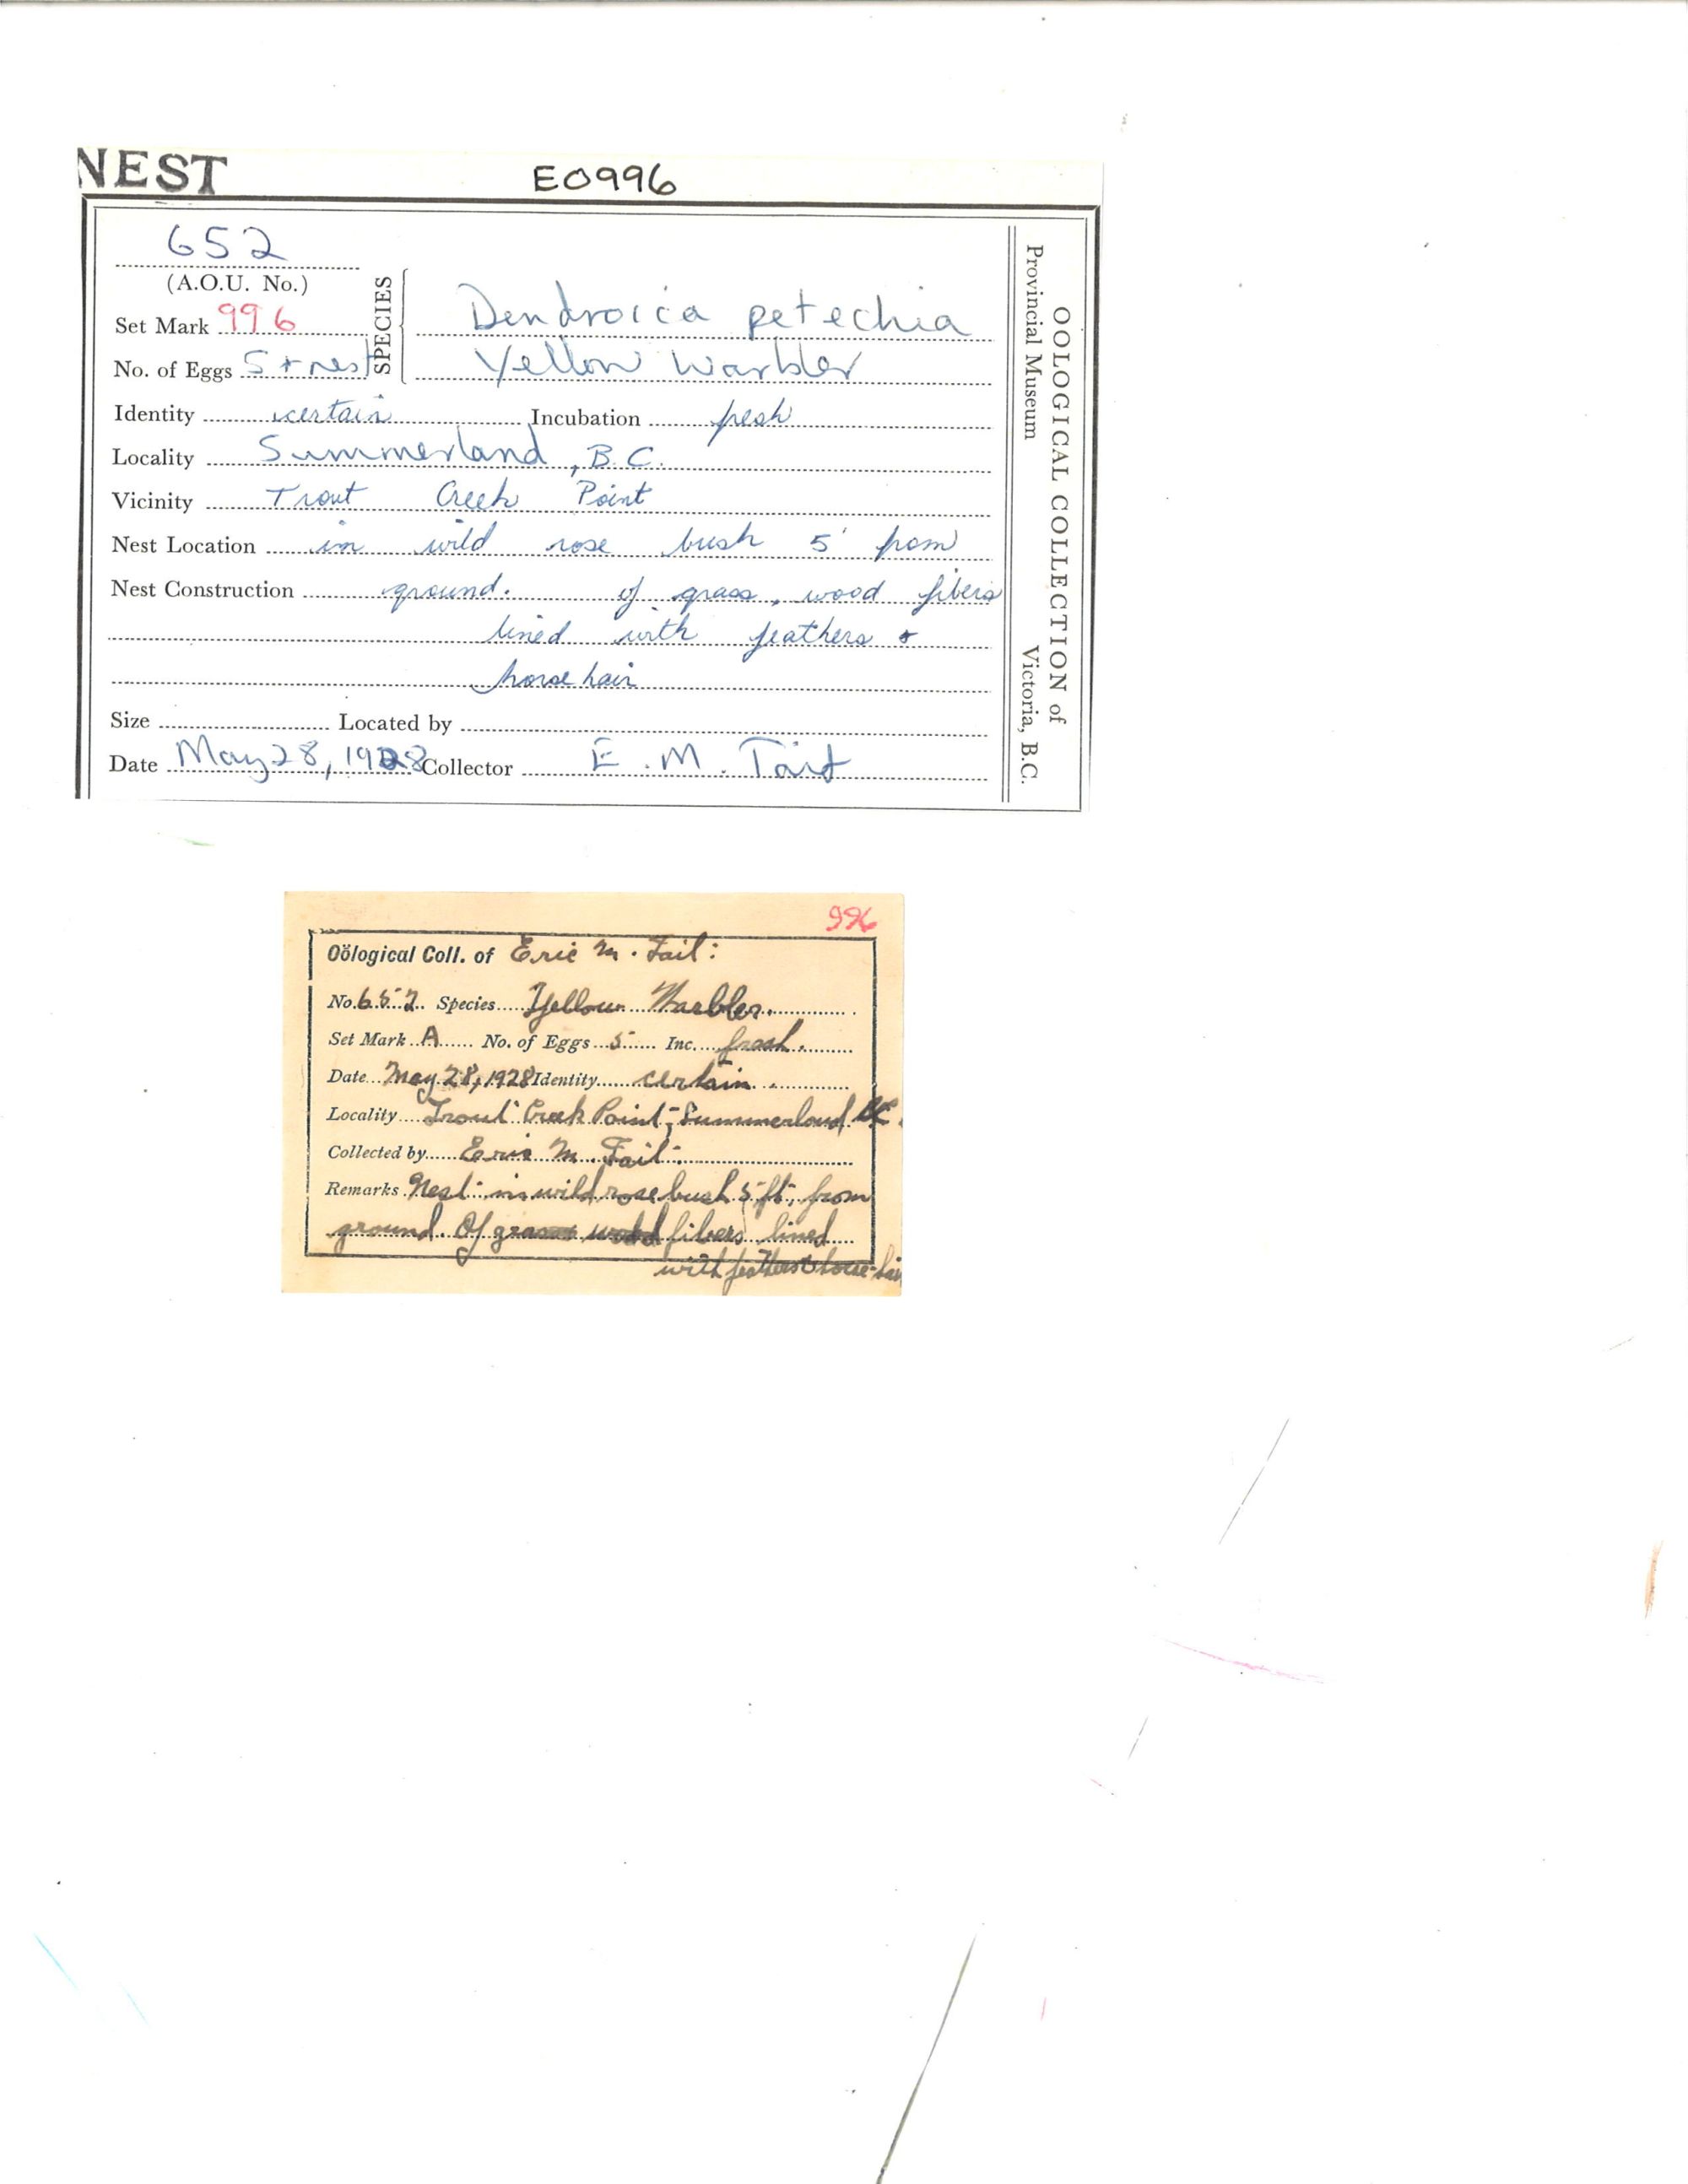 NEST
E0996
652
(A.O.U. No.)
SPECIES
Set Mark 996
Dendroica petechia
No. of Eggs 5 + nest
Yellow Warbler
Identity certain Incubation fresh
Locality Summerland, B.C.
Vicinity Trout Creek Point
Nest Location in wild rose bush 5' from
Nest Construction ground. of grass, wood fibers
lined with feathers +
horse hair
Size Located by
Date May 28, 1928 Collector E. M. Tait
OOLOGICAL COLLECTION of
Provincial Museum Victoria, B.C.
996
Oölogical Coll. of Eric M. Tait.
No. 652 Species Yellow Warbler.
Set Mark A No. of Eggs 5 Inc. fresh.
Date May 28, 1928 Identity certain.
Locality Trout Creek Point, Summerland BC.
Collected by Eric M. Tait.
Remarks Nest in wild rose bush 5 ft, from
ground. Of grass wood fibers lined
with feathers & horse-hair